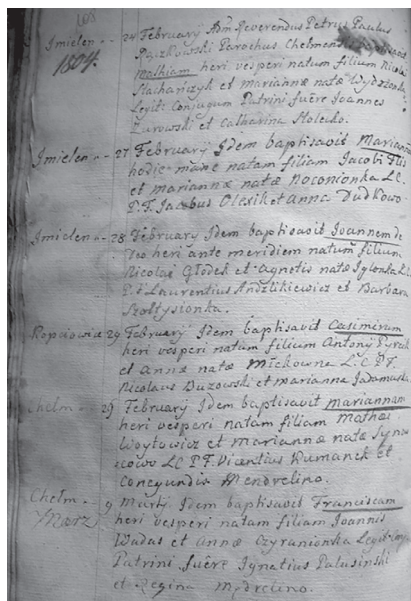 108
Imielen 24 February Adm. Reverendus Petrus Paulus
1804. Parochus Chelmensis baptisavit
Mathiam heri vesperi natum filium Nicolai
Stachańczyk et mariannæ natæ
Legiti Conjugum Patrini fuêre Joannes
Żurowski et Catharina Stolecko.
Imielen 27 February Idem baptisavit Mariannam
hodie mane natam filiam Jacobi
et mariannæ natæ Noconionka L.C.
P.F. Jacobus Olexik et Anna Dudkowo
Imielen 28 February Idem baptisavit Joannem de
Deo heri ante meridiem natum filium
Nicolai Głodek et Agnetis natæ Iglonka L.C.
P.F. Laurentius Andzlikiewicz et Barbara
Szołtysionka.
Kopciowice 29 February Idem baptisavit Casimirum
heri vesperi natum filium Antony
et Annæ natæ L.C. P.F
Nicolaus Buzowski et marianna Jadamuska
Chelm 29 February Idem baptisavit Mariannam
heri vesperi natam filiam Mathæi
Woytowicz et mariannæ natæ
L.C P.F. Vicentius Kumanek et
Conegundis Mendrelino.
Chełm 9 Martij Idem baptisavit Franciscam
März heri vesperi natam filiam Joannis
Wadas et Annæ Ozyranionka Legit. Conj.
Patrini fuêre Ignatius Palusinski
et Regina Mędrelino.